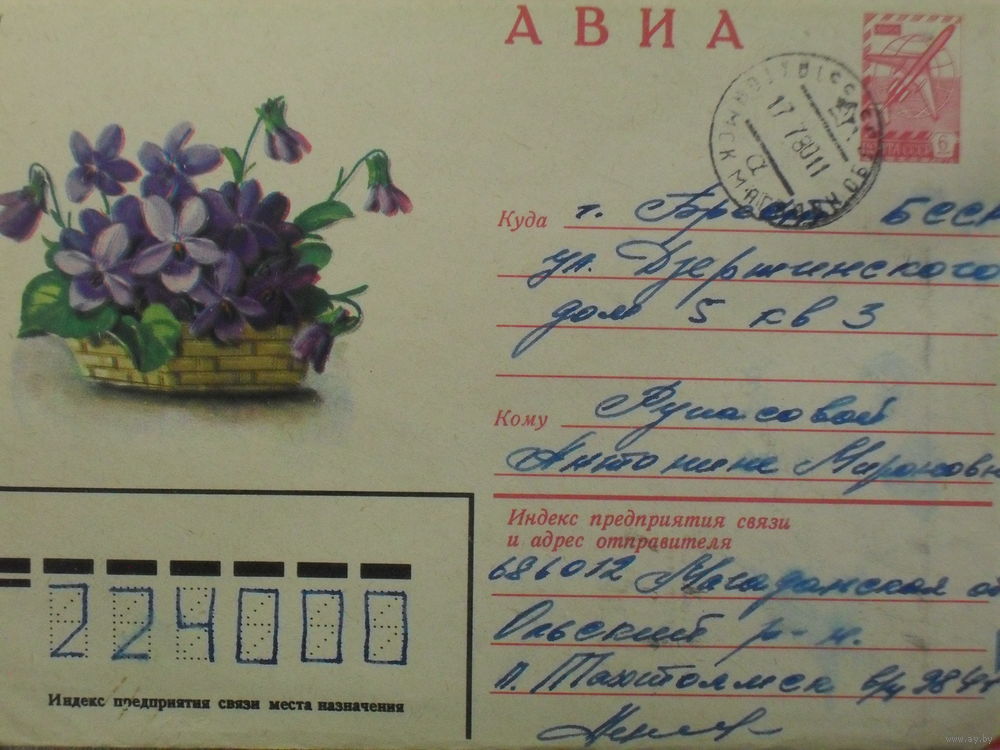 АВИА
ПОЧТА СССР
6
17 7 80 11
Куда г. Брест БССР
ул. Дзержинского
дом 5 кв 3
Кому
Антонине Мироновн
Индекс предприятия связи
и адрес отправителя
686012 Магаданская о
Ольский р-н.
п. в/ч
224000
Индекс предприятия связи места назначения
www.ay.by